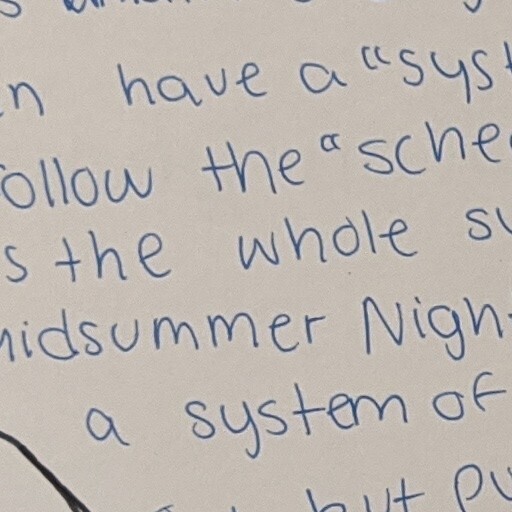 n have a "syst
ollow the "sche
s the whole su
midsummer Nigh
a system of
but pu